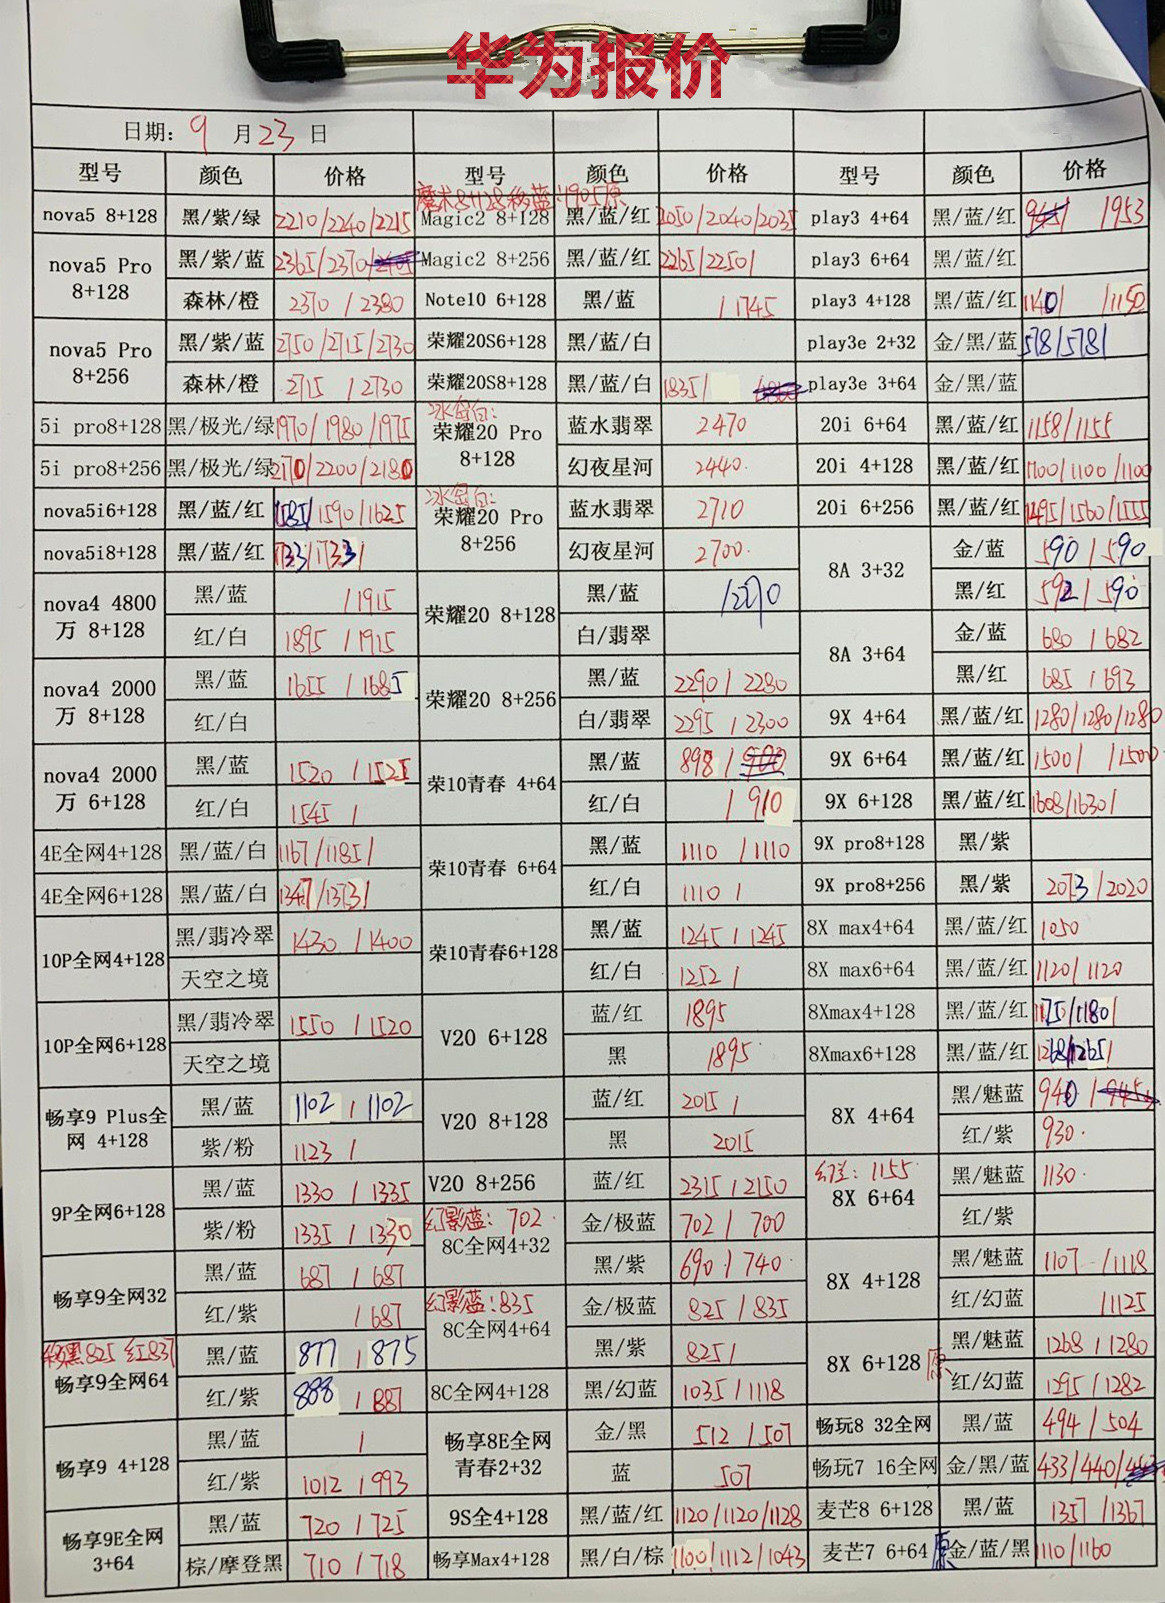 华为报价
日期: 9 月 23 日
型号 颜色 价格 型号 颜色 价格 型号 颜色 价格
魔术8+128移蓝:1905原
nova5 8+128 黑/紫/绿 2210/2240/2215 Magic2 8+128 黑/蓝/红 2050/2040/2035 play3 4+64 黑/蓝/红 /1953
nova5 Pro 8+128 黑/紫/蓝 2365/2370/ Magic2 8+256 黑/蓝/红 2265/2250/ play3 6+64 黑/蓝/红
森林/橙 2370 / 2380 Note10 6+128 黑/蓝 / 1745 play3 4+128 黑/蓝/红 1140/ /1150
nova5 Pro 8+256 黑/紫/蓝 2750/2715/2730 荣耀20S6+128 黑/蓝/白 play3e 2+32 金/黑/蓝 578/578/
森林/橙 2715 / 2730 荣耀20S8+128 黑/蓝/白 1835/ play3e 3+64 金/黑/蓝
5i pro8+128 黑/极光/绿 1970/1980/1975 冰岛白: 荣耀20 Pro 8+128 蓝水翡翠 2470 20i 6+64 黑/蓝/红 1158/1155
5i pro8+256 黑/极光/绿 2170/2200/2180 幻夜星河 2440 20i 4+128 黑/蓝/红 1100/1100/1100
nova5i6+128 黑/蓝/红 1585/1590/1625 冰岛白: 荣耀20 Pro 8+256 蓝水翡翠 2710 20i 6+256 黑/蓝/红 1495/1560/1555
nova5i8+128 黑/蓝/红 1733/1733/ 幻夜星河 2700 8A 3+32 金/蓝 590/590
nova4 4800万 8+128 黑/蓝 / 1915 荣耀20 8+128 黑/蓝 黑/红 592/590
红/白 1895 / 1915 白/翡翠 8A 3+64 金/蓝 680 / 682
nova4 2000万 8+128 黑/蓝 1655 / 1685 荣耀20 8+256 黑/蓝 2290 / 2280 黑/红 685 / 693
红/白 白/翡翠 2295 / 2300 9X 4+64 黑/蓝/红 1280/1280/1280
nova4 2000万 6+128 黑/蓝 1520 / 1525 荣10青春 4+64 黑/蓝 898 / 9X 6+64 黑/蓝/红 1500/ /1500
红/白 1545 / 红/白 / 910 9X 6+128 黑/蓝/红 1608/1630/
4E全网4+128 黑/蓝/白 1167/1185/ 荣10青春 6+64 黑/蓝 1110 / 1110 9X pro8+128 黑/紫
4E全网6+128 黑/蓝/白 1347/1373/ 红/白 1110 / 9X pro8+256 黑/紫 2073/2020
10P全网4+128 黑/翡冷翠 1430 / 1400 荣10青春6+128 黑/蓝 1245 / 1245 8X max4+64 黑/蓝/红 1050
天空之境 红/白 1252 / 8X max6+64 黑/蓝/红 1120/1120
10P全网6+128 黑/翡冷翠 1550 / 1520 V20 6+128 蓝/红 1895 8Xmax4+128 黑/蓝/红 1175/1180/
天空之境 黑 1895 8Xmax6+128 黑/蓝/红 1268/1265/
畅享9 Plus全网 4+128 黑/蓝 1102 / 1102 V20 8+128 蓝/红 2015 / 8X 4+64 黑/魅蓝 940 /
紫/粉 1123 / 黑 2015 红/紫 930
9P全网6+128 黑/蓝 1330 / 1335 V20 8+256 蓝/红 2315 / 2150 幻蓝: 1155 8X 6+64 黑/魅蓝 1130
紫/粉 1335 / 1330 幻影蓝: 702 8C全网4+32 金/极蓝 702 / 700 红/紫
畅享9全网32 黑/蓝 687 / 687 黑/紫 690 / 740 8X 4+128 黑/魅蓝 1107 /1118
红/紫 / 687 幻影蓝: 835 8C全网4+64 金/极蓝 825 / 835 红/幻蓝 /1125
移黑825 红837 畅享9全网64 黑/蓝 877 / 875 黑/紫 825 / 8X 6+128 原 黑/魅蓝 1268 / 1280
红/紫 888 / 887 8C全网4+128 黑/幻蓝 1035 / 1118 红/幻蓝 1295 / 1282
畅享9 4+128 黑/蓝 / 畅享8E全网青春2+32 金/黑 512 / 507 畅玩8 32全网 黑/蓝 494 / 504
红/紫 1012 / 993 蓝 507 畅玩7 16全网 金/黑/蓝 433/440/
畅享9E全网 3+64 黑/蓝 720 / 725 9S全4+128 黑/蓝/红 1120/1120/1128 麦芒8 6+128 黑/蓝 1357 / 1367
棕/摩登黑 710 / 718 畅享Max4+128 黑/白/棕 1100/1112/1043 麦芒7 6+64 原 金/蓝/黑 1110/1160